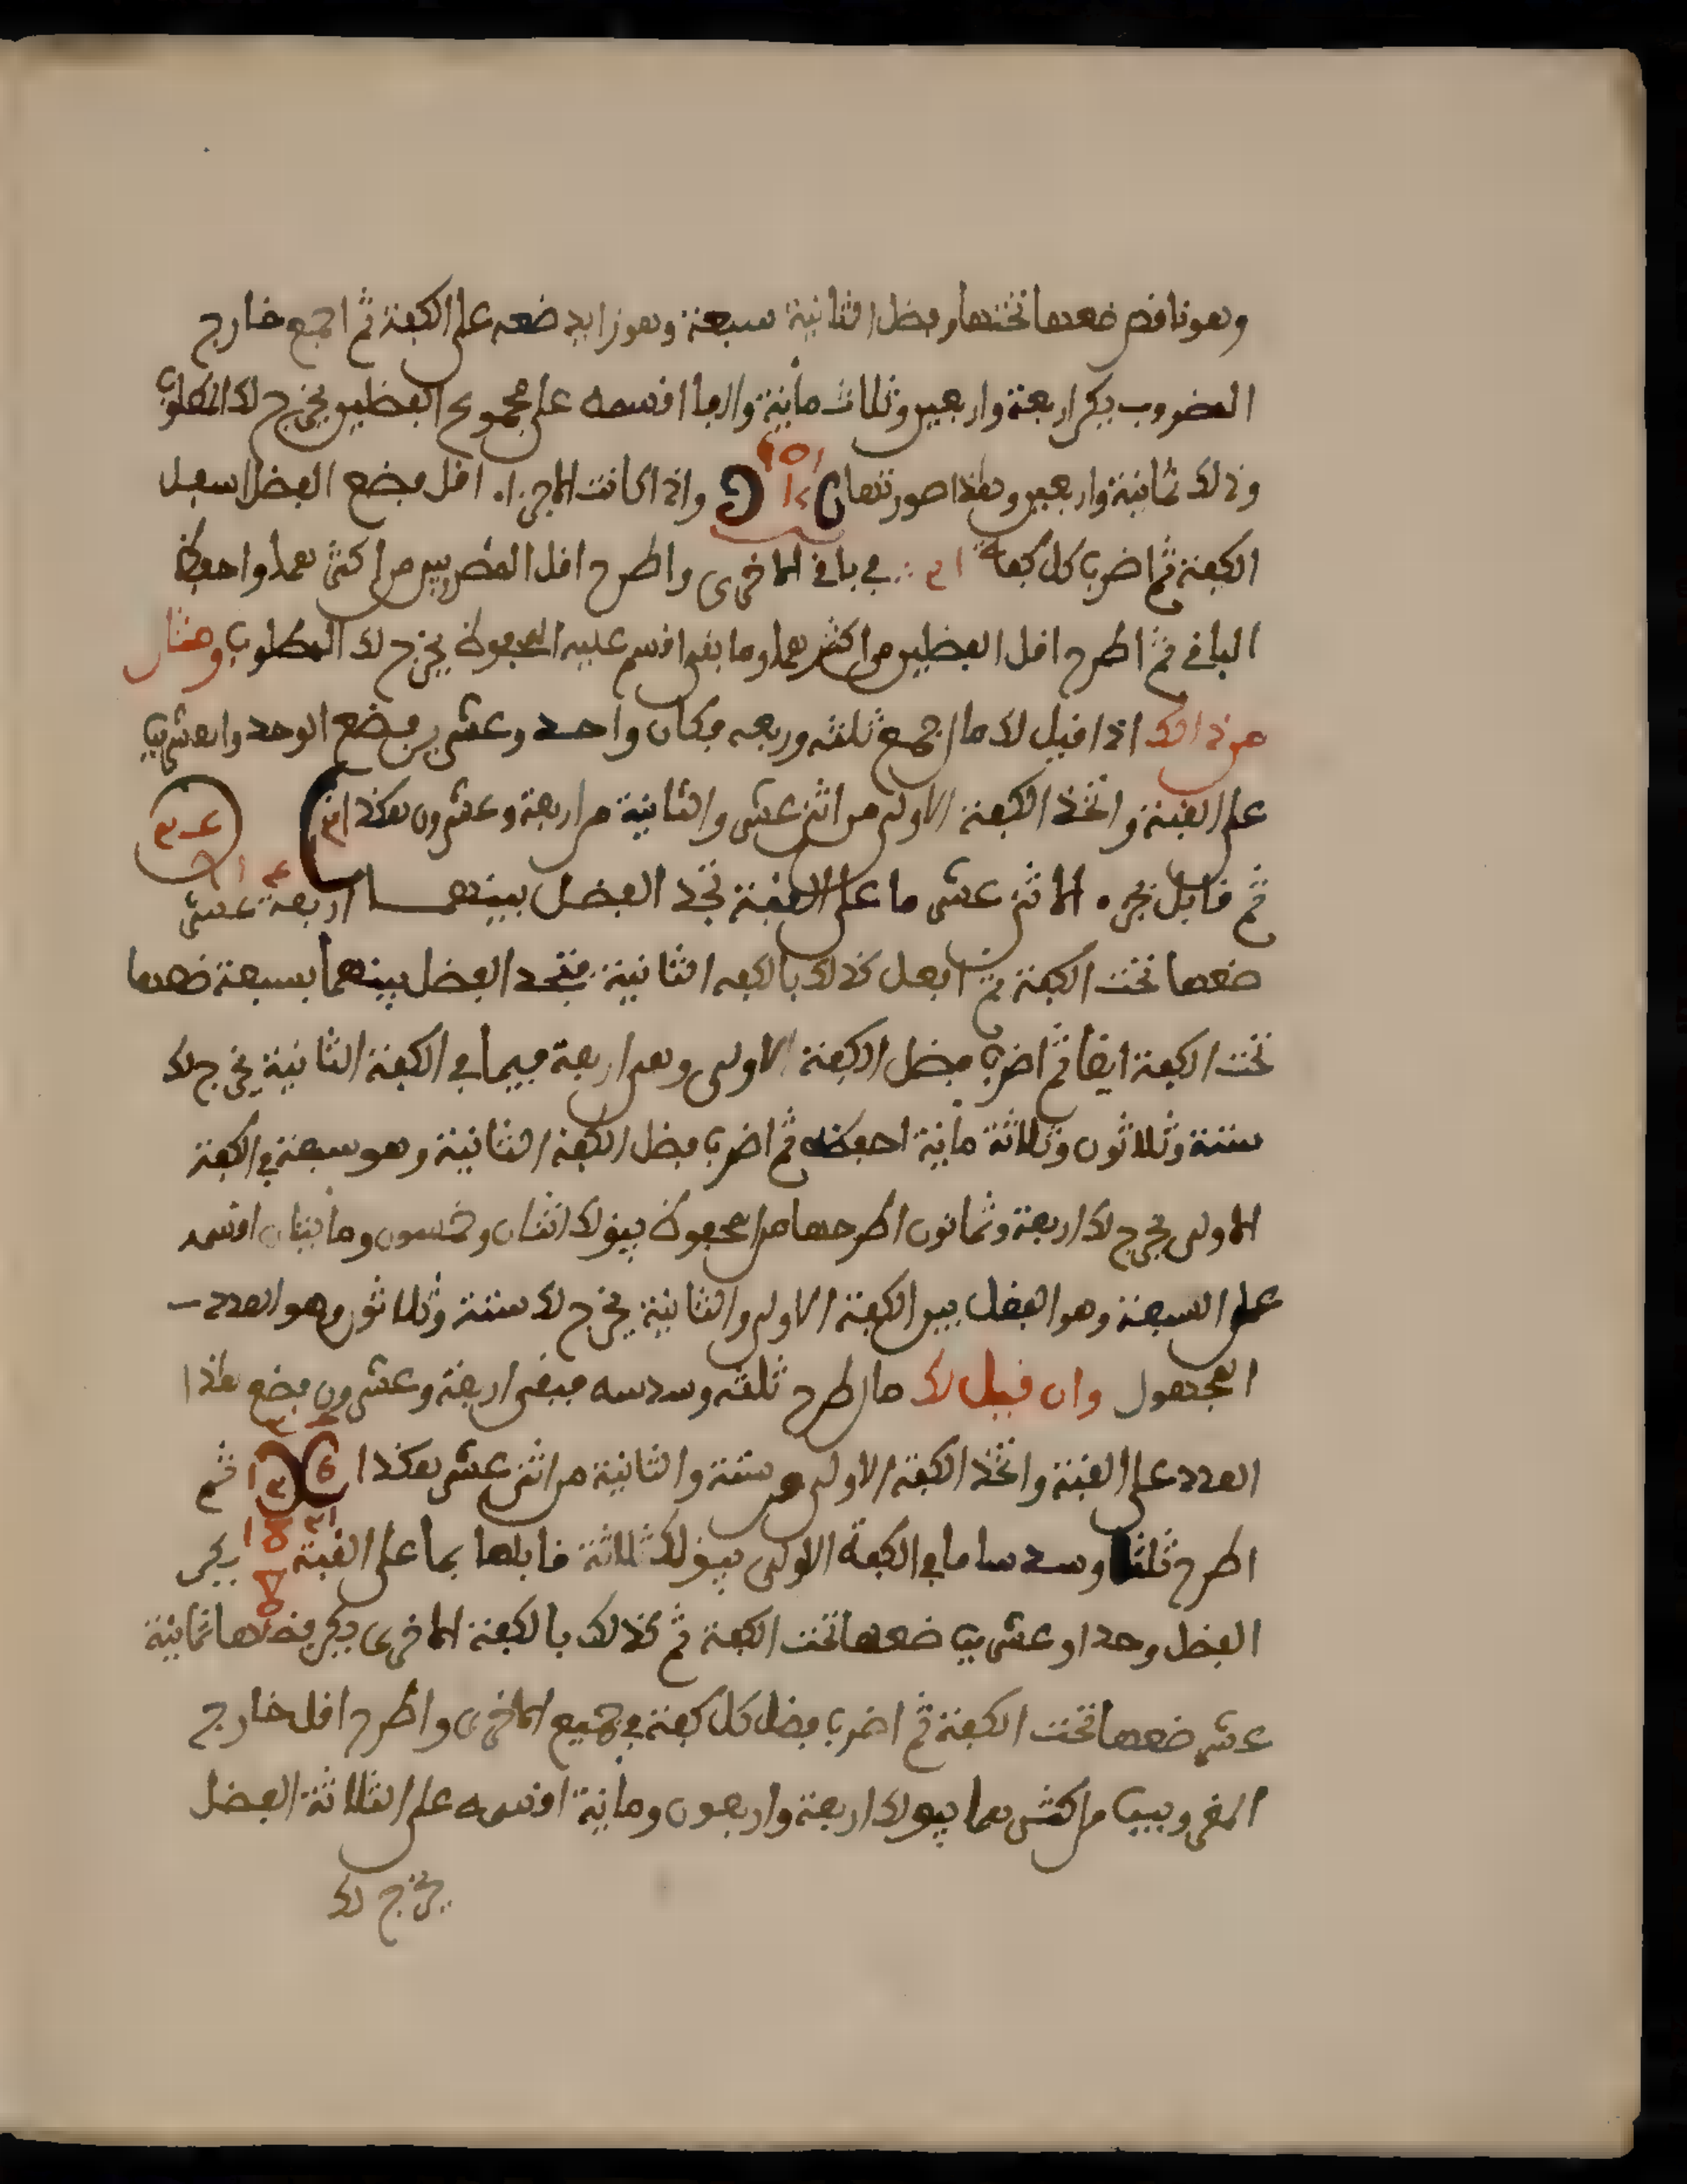 وهو ناقص ضعها تحتها وفضل الثانية سبعة وهو زايد ضعه على الكفة ثم اجمع خارج
المضروب يكن اربعة واربعين وثلاث مائة والفا اقسمه على مجموع الفضلين يخرج لك المطلوب
وذلك ثمانية واربعين وهذا صورتها واذا كانت الاجزاء اقل فضع الفضل اسفل
الكفة ثم اضرب كل كفة في باقي الاخرى واطرح اقل المضروبين من اكثرهما واحفظ
الباقي ثم اطرح اقل الفضلين من اكثرهما وما بقي اقسم عليه المحفوظ يخرج لك المطلوب ومثال
من ذالك اذا قيل لك مال جمع ثلثه وربعه فكان واحد وعشرين فضع الوحد والعشرين
على القبة واتخذ الكفة الاولى من اثني عشر والثانية من اربعة وعشرون هكذا
ثم قابل بجزء الاثني عشر ما على القبة تجد الفضل بينهما اربعة عشر
ضعها تحت الكفة ثم افعل كذلك بالكفة الثانية فتجد الفضل بينهما بسبعة ضعها
تحت الكفة ايضا ثم اضرب فضل الكفة الاولى وهي اربعة فيما في الكفة الثانية يخرج لك
ستة وثلاثون وثلاثة مائة احفظه ثم اضرب فضل الكفة الثانية وهو سبعة في الكفة
الاولى يخرج لك اربعة وثمانون اطرحها من المحفوظ يبقى لك اثنان وخمسون ومايتان اقسمه
على السبعة وهو الفضل بين الكفة الاولى والثانية يخرج لك ستة وثلاثون وهو العدد
المجهول وان قيل لك مال طرح ثلثه وسدسه فبقي اربعة وعشرون فضع هذا
العدد على القبة واتخذ الكفة الاولى من ستة والثانية من اثني عشر هكذا ثم
اطرح ثلثا وسدسا ما في الكفة الاولى يبقى لك ثلاثة قابلها بما على القبة يكن
الفضل وحدا وعشرين ضعها تحت الكفة ثم كذلك بالكفة الاخرى يكن فضلها ثمانية
عشر ضعها تحت الكفة ثم اضرب فضل كل كفة في جميع الاخرى واطرح اقل خارج
المضروبين من اكثرهما يبقى لك اربعة واربعون ومائة اقسمه على الثلاثة الفضل
يخرج لك